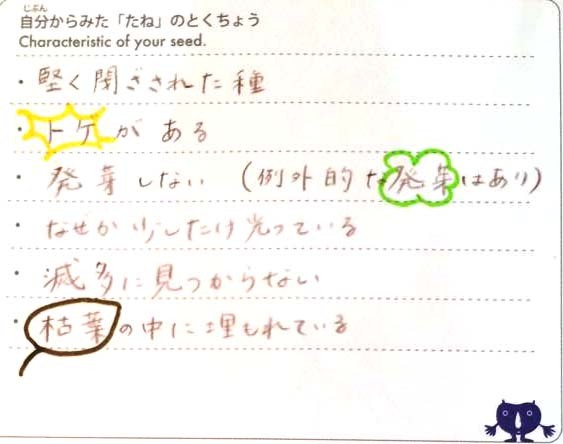 じぶん
自分からみた「たね」のとくちょう
Characteristic of your seed.
・堅く閉ざされた種
・トゲがある
・発芽しない (例外的な発芽はあり)
・なぜか少しだけ光っている
・滅多に見つからない
・枯葉の中に埋もれている